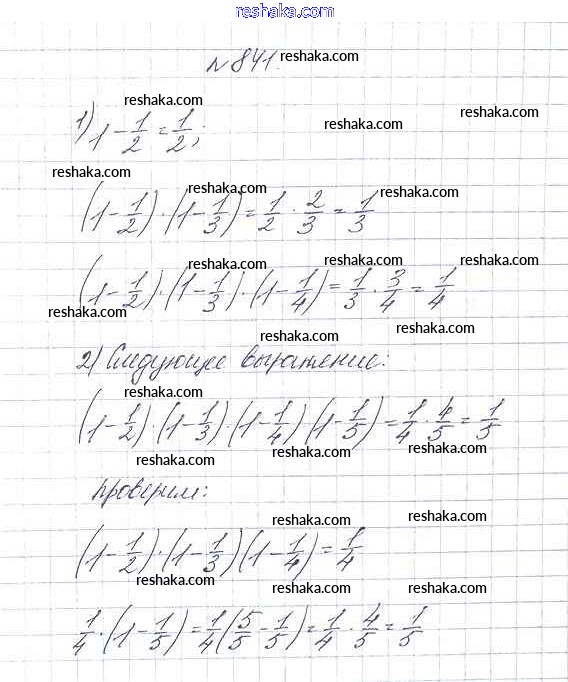 www.reshaka.com
№841. reshaka.com
reshaka.com
1) 1 - 1/2 = 1/2; reshaka.com reshaka.com
reshaka.com reshaka.com reshaka.com
(1 - 1/2) · (1 - 1/3) = 1/2 · 2/3 = 1/3
reshaka.com reshaka.com reshaka.com
(1 - 1/2) · (1 - 1/3) · (1 - 1/4) = 1/3 · 3/4 = 1/4
reshaka.com reshaka.com reshaka.com
2) Следующее выражение:
reshaka.com reshaka.com
(1 - 1/2) · (1 - 1/3) · (1 - 1/4) (1 - 1/5) = 1/4 · 4/5 = 1/5
reshaka.com reshaka.com reshaka.com
проверим:
reshaka.com reshaka.com
(1 - 1/2) · (1 - 1/3) (1 - 1/4) = 1/4
reshaka.com reshaka.com reshaka.com
1/4 · (1 - 1/5) = 1/4 (5/5 - 1/5) = 1/4 · 4/5 = 1/5